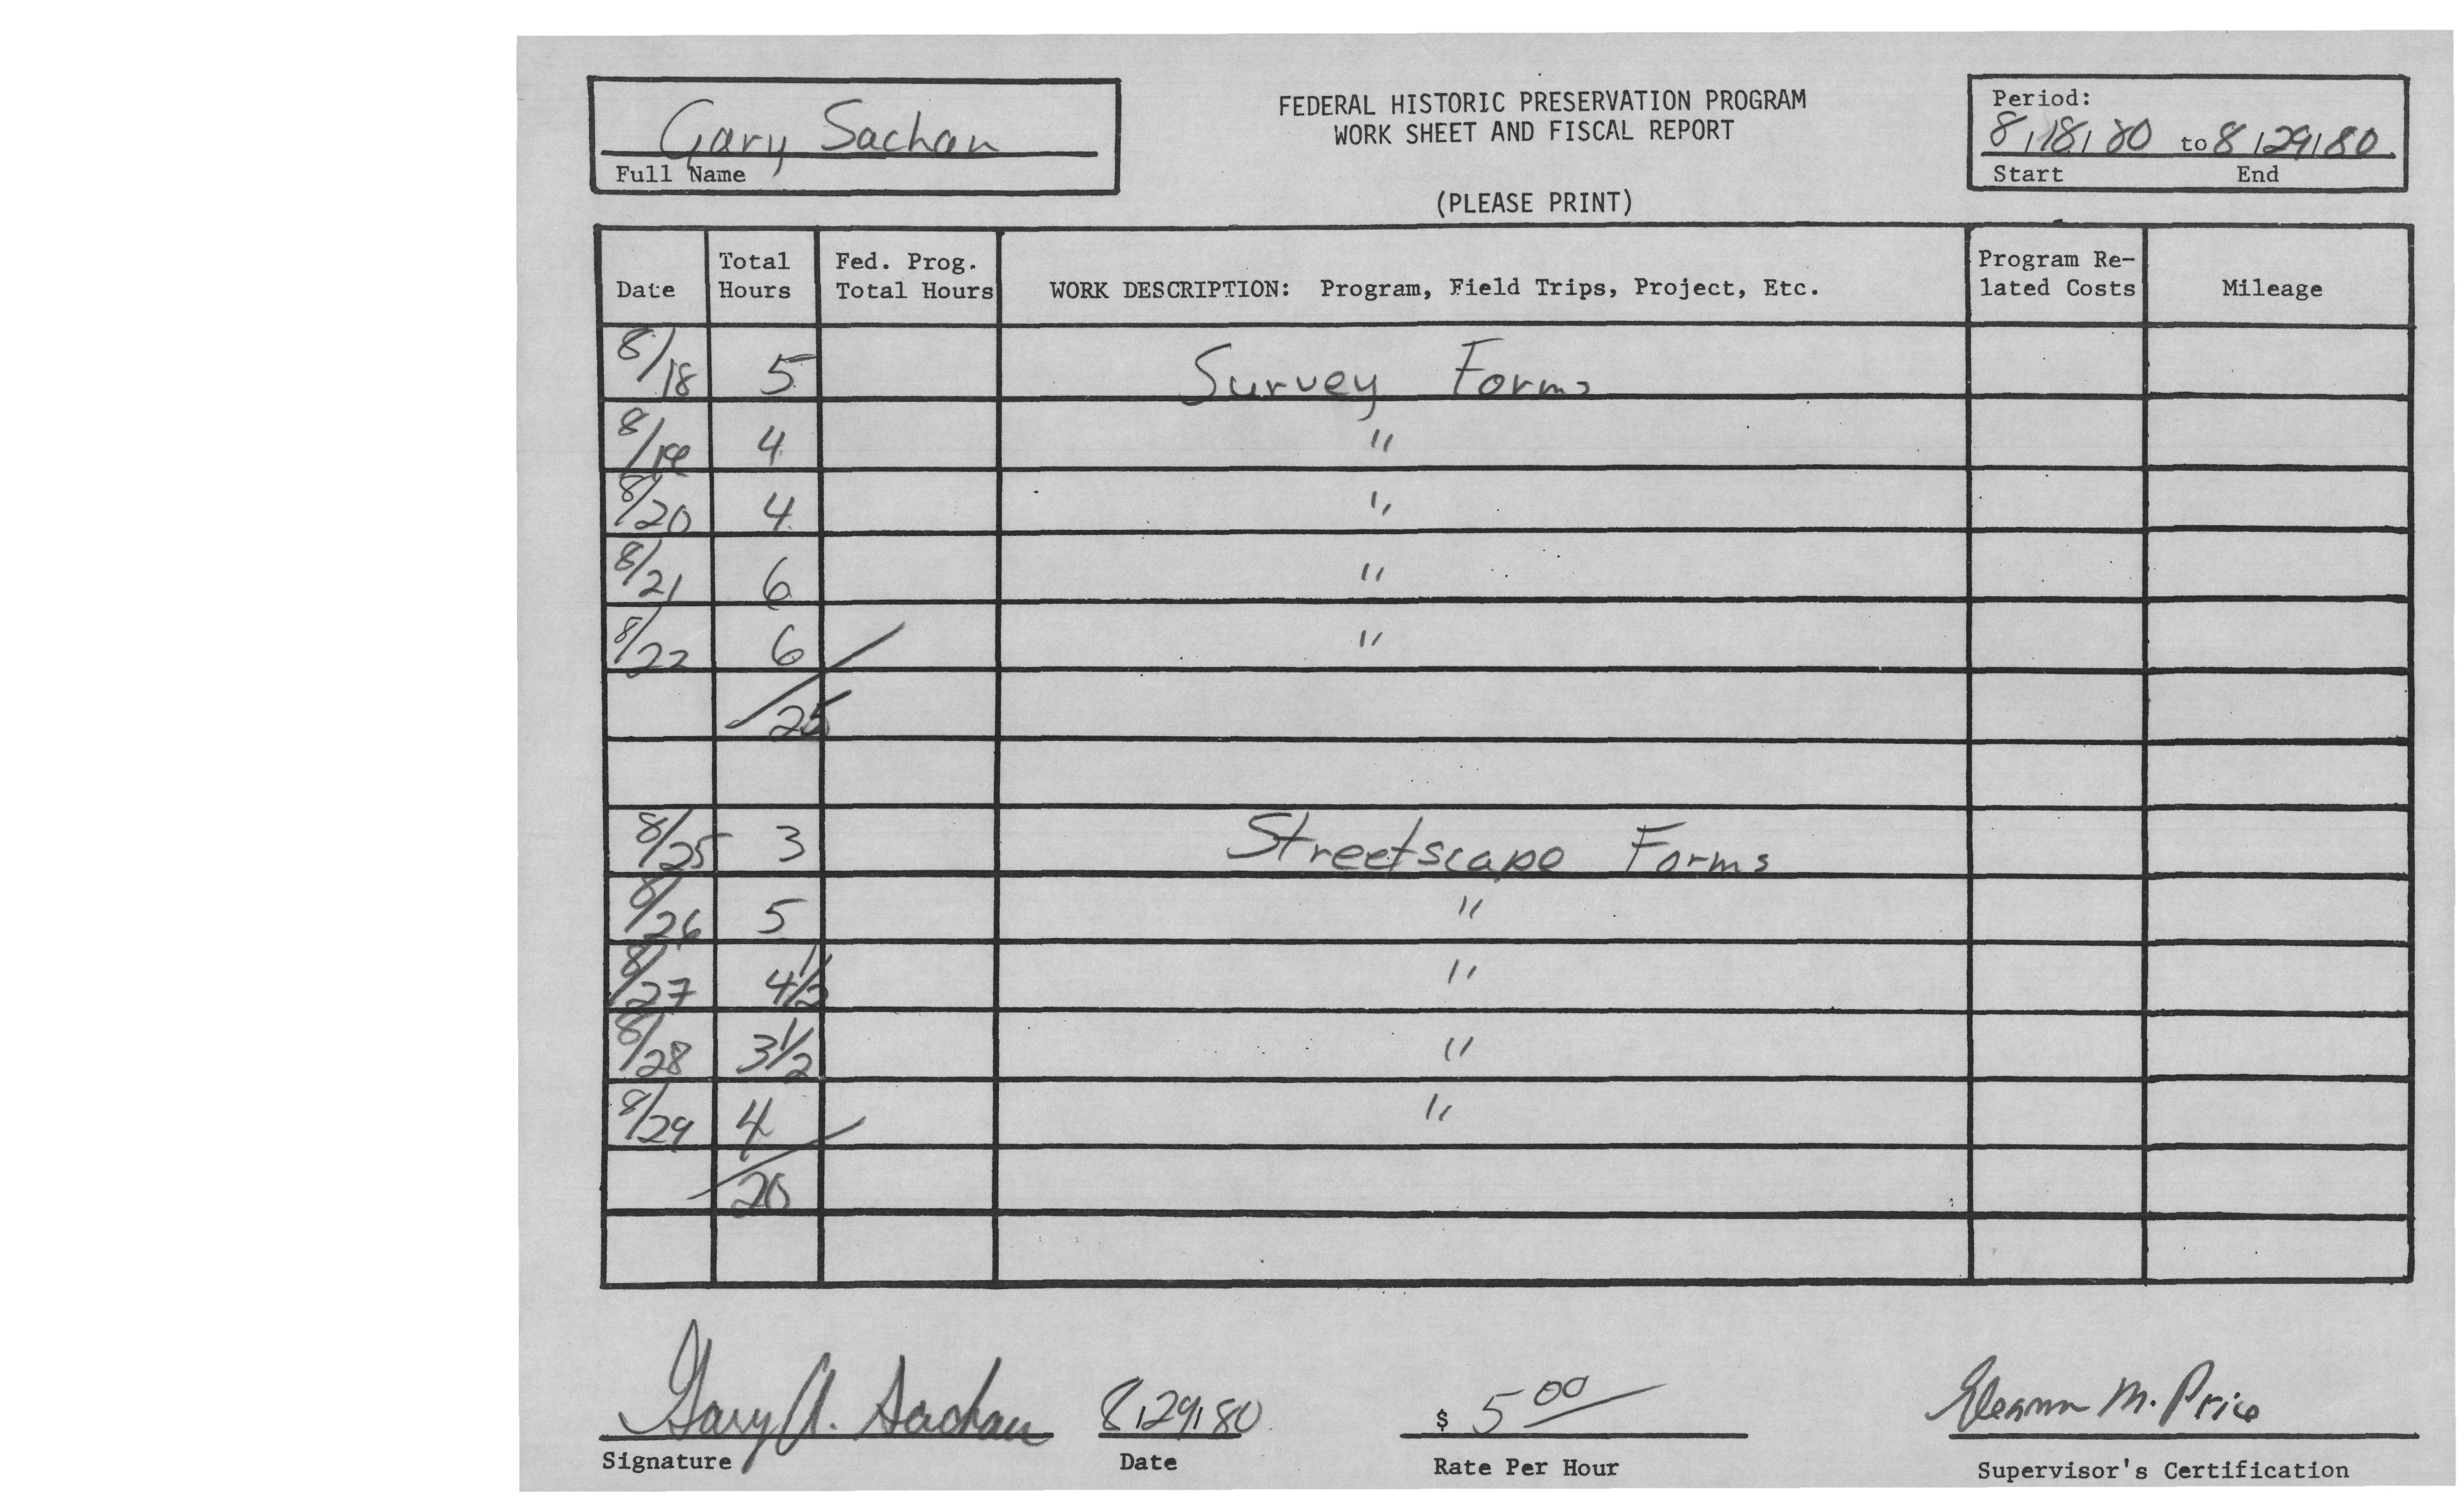 Gary Sachan
Full Name
FEDERAL HISTORIC PRESERVATION PROGRAM
WORK SHEET AND FISCAL REPORT
(PLEASE PRINT)
Period:
8/18/80 to 8/29/80
Start End
Date Total Hours Fed. Prog. Total Hours WORK DESCRIPTION: Program, Field Trips, Project, Etc. Program Re- lated Costs Mileage
8/18 5 Survey Forms
8/19 4 "
8/20 4 "
8/21 6 "
8/22 6 "
25
8/25 3 Streetscape Forms
8/26 5 "
8/27 4 1/2 "
8/28 3 1/2 "
8/29 4 "
20
Gary A. Sachan 8/29/80 $ 5 00 Eleanor M. Price
Signature Date Rate Per Hour Supervisor's Certification